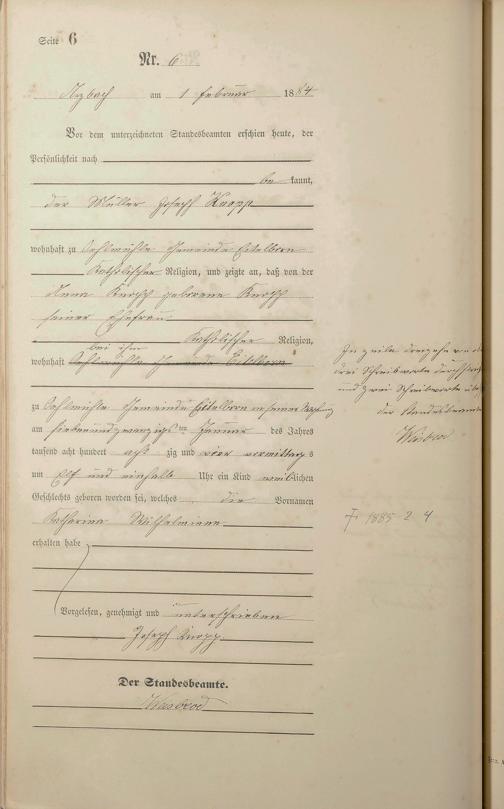 Seite 6
Nr. 6
Arzbach am 1 Februar 1884
Vor dem unterzeichneten Standesbeamten erschien heute, der
Persönlichkeit nach
be kannt,
der Müller Joseph Knopp
wohnhaft zu Oehlmühle Gemeinde Eitelborn
Katholischer Religion, und zeigte an, daß von der
Anna Knopp geborene Knopp
seiner Ehefrau
Katholischer Religion,
bei ihm
wohnhaft Oehlmühle Gemeinde Eitelborn
zu Oehlmühle Gemeinde Eitelborn in seiner Wohnung
am siebenundzwanzigsten Januar des Jahres
tausend acht hundert acht zig und vier vormittags
um Elf und einhalb Uhr ein Kind weiblichen
Geschlechts geboren worden sei, welches die Vornamen
Katharina Wilhelmine
erhalten habe
Vorgelesen, genehmigt und unterschrieben
Joseph Knopp
Der Standesbeamte.
In Zeile dreizehn
drei Schreibworte
und zwei Schreibworte
der Standesbeamte
† 1885 2 4